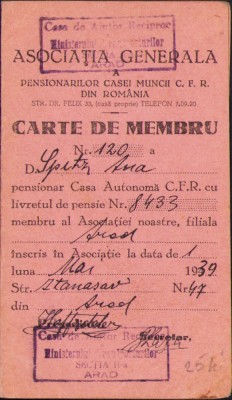 Casa de Ajutor Reciproc
Ministerul
ARAD
ASOCIAȚIA GENERALA
A
PENSIONARILOR CASEI MUNCII C. F. R.
DIN ROMÂNIA
STR. DR. FELIX 33, (casă proprie) TELEFON
CARTE DE MEMBRU
Nr. 120 a
D. Spitz Ana
pensionar Casa Autonomă C.F.R. cu
livretul de pensie Nr. 8433
membru al Asociației noastre, filiala
Arad
înscris în Asociație la data de 1
luna Mai 1939
Str. Nr. 47
din Arad
Secretar,
Casa de Ajutor Reciproc
Ministerul
SECȚIA
ARAD